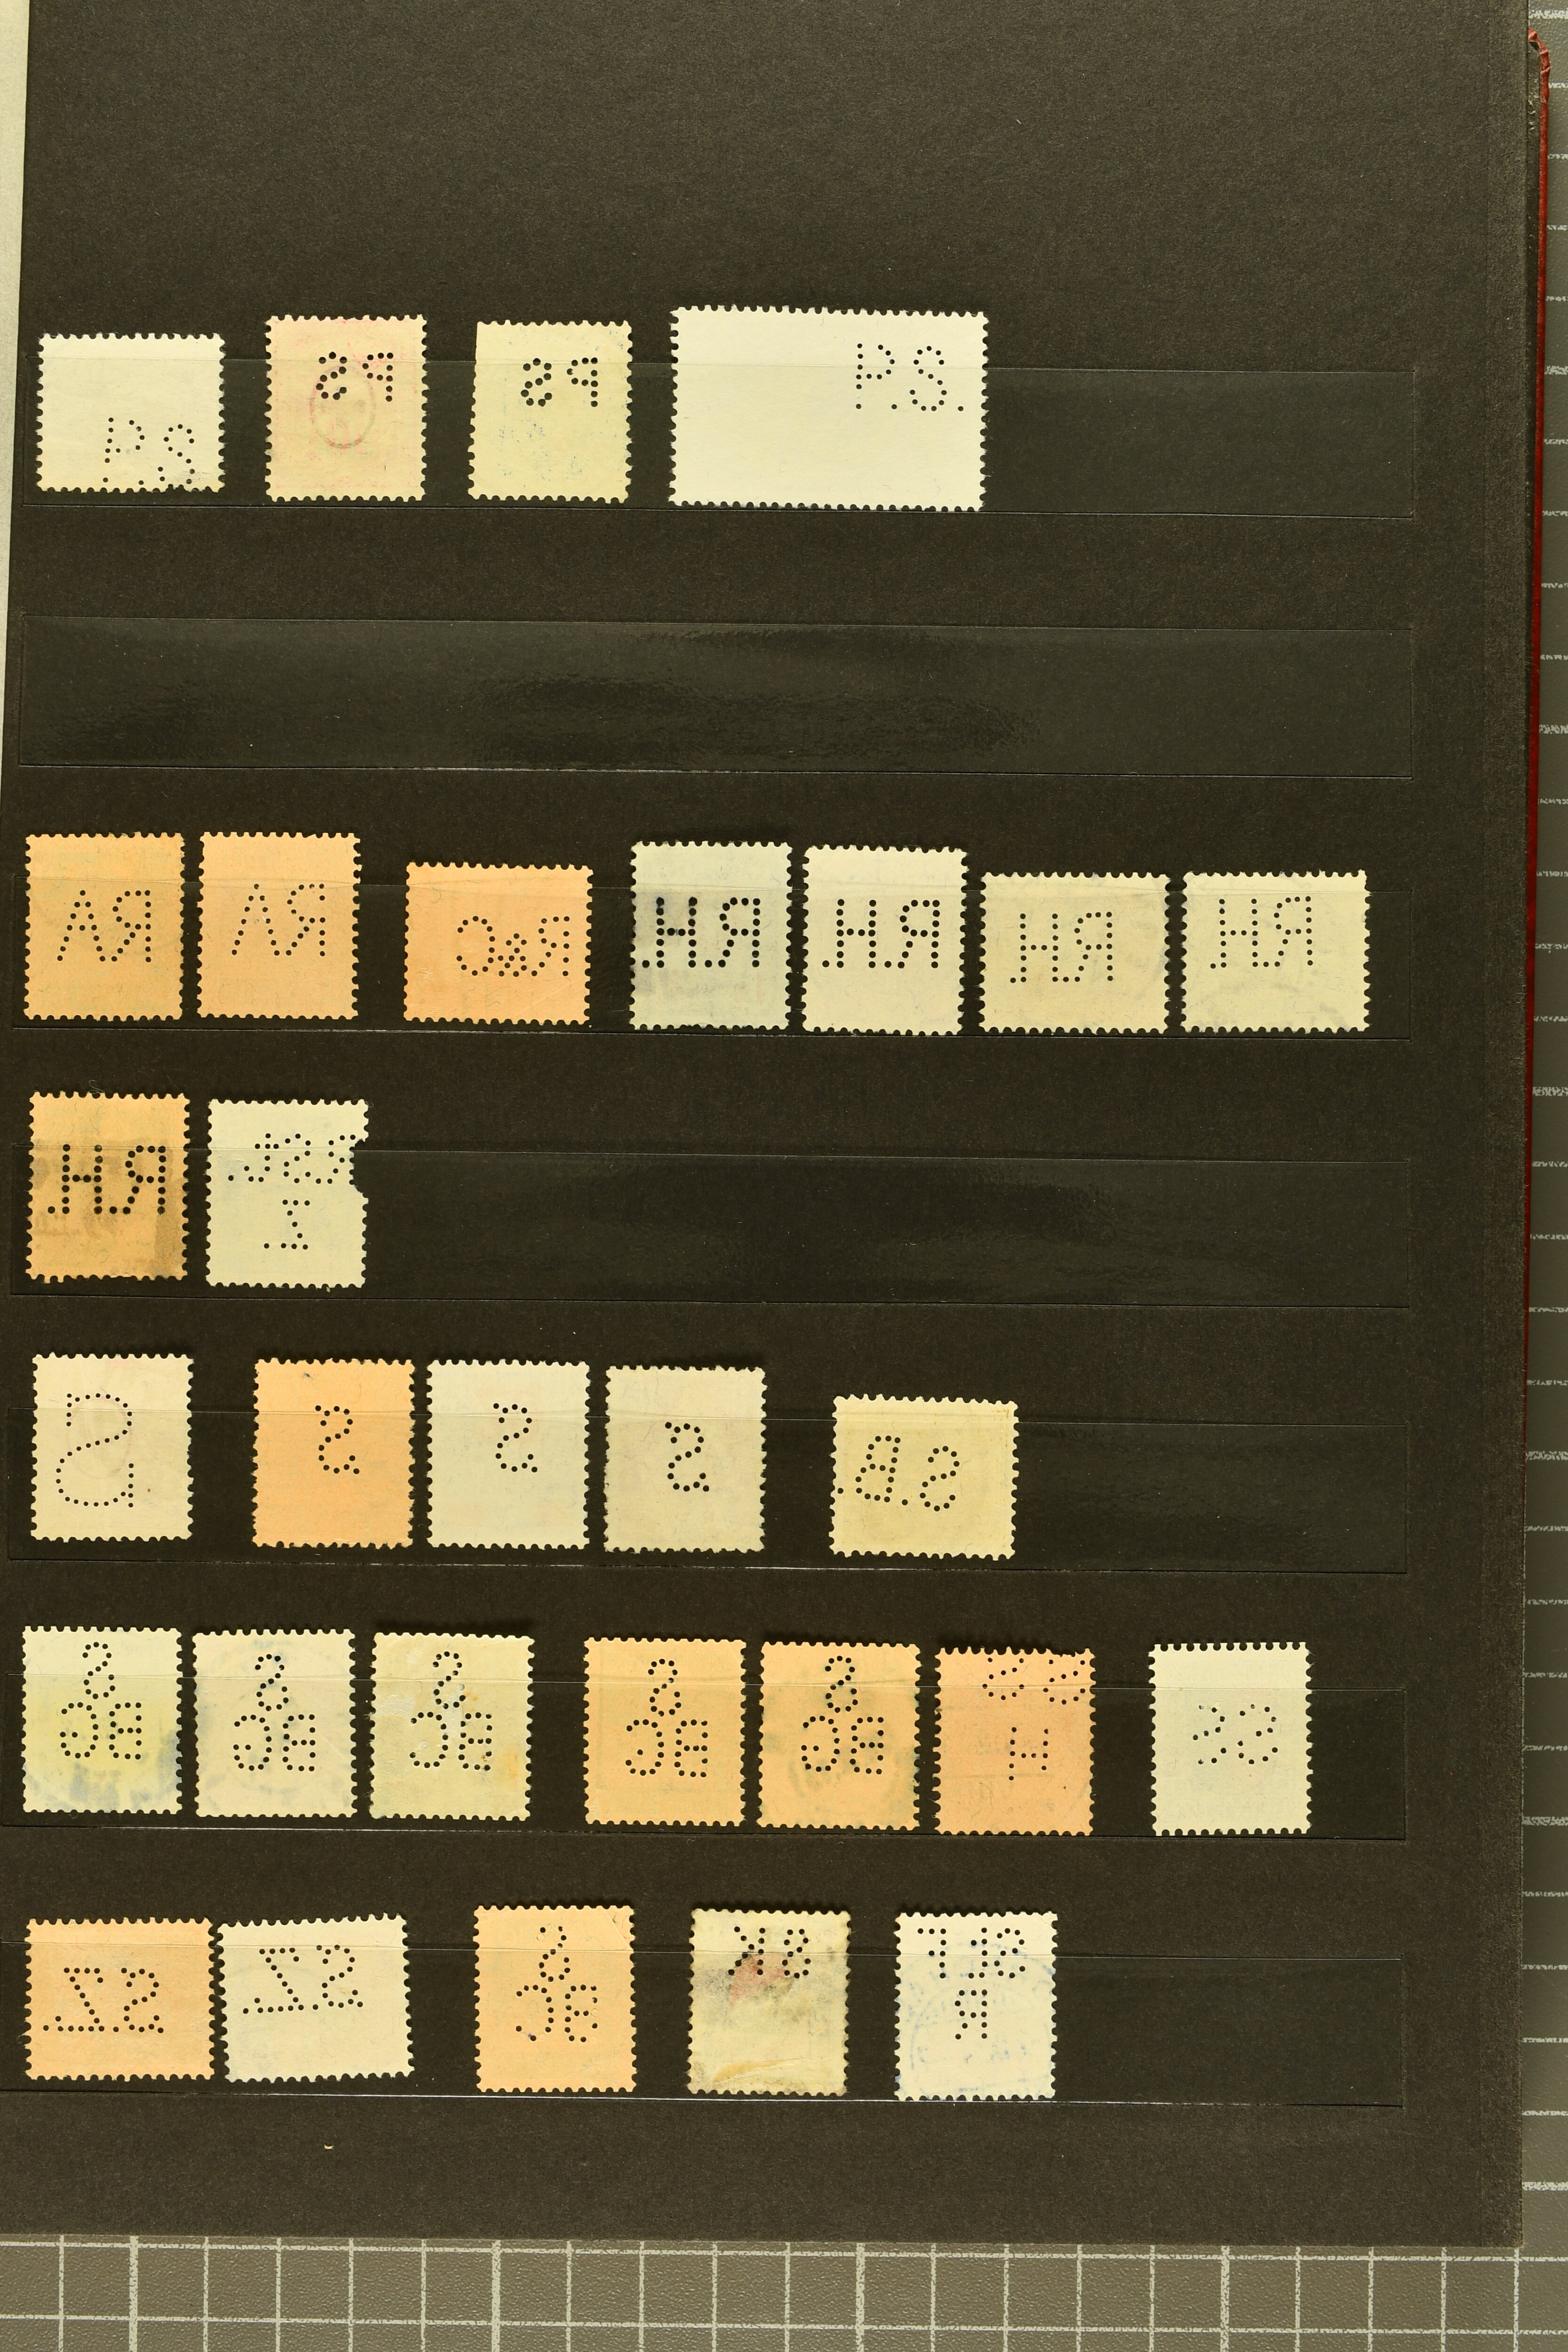 P.S.
PS
PS
P.S.
RA
RA
R&C
R.H.
R.H.
R.H.
R.H.
R.H.
S
S
S
S
S.B.
S
BC
S
BC
S
BC
S
BC
S
BC
SS
H
S.Z.
S.Z.
S
BC
SK
R